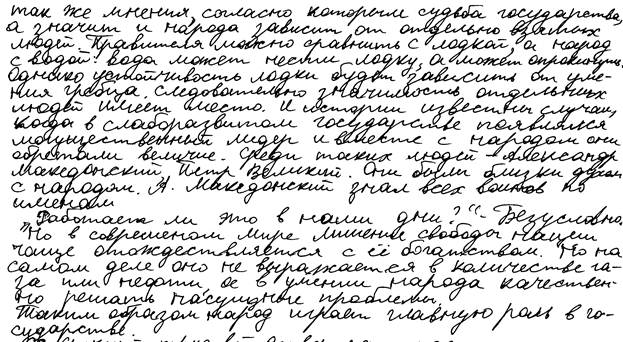 так же мнения, согласно которым судьба государства,
а значит и народа зависит от отдельно взятых
людей. Правителя можно сравнить с лодкой, а народ
с водой: вода может нести лодку, а может опрокинуть.
Однако устойчивость лодки будет зависить от уме-
ния гребца. Следовательно значимость отдельных
людей имеет место. И истории известны случаи,
когда в слаборазвитом государстве появлялся
могущественный лидер и вместе с народом они
обретали величие. Среди таких людей - Александр
Македонский, Петр Великий. Они были близки духом
с народом. А. Македонский знал всех воинов по
именам
"Работает ли это в наши дни?" - Безусловно.
Но в современом мире лишение свободы нации
чаще отождествляется с её богатством. Но на
самом деле оно не выражается в количестве га-
за или нефти, а в умении народа качествен-
но решать насущные проблемы.
Таким образом народ играет главную роль в го-
сударстве.